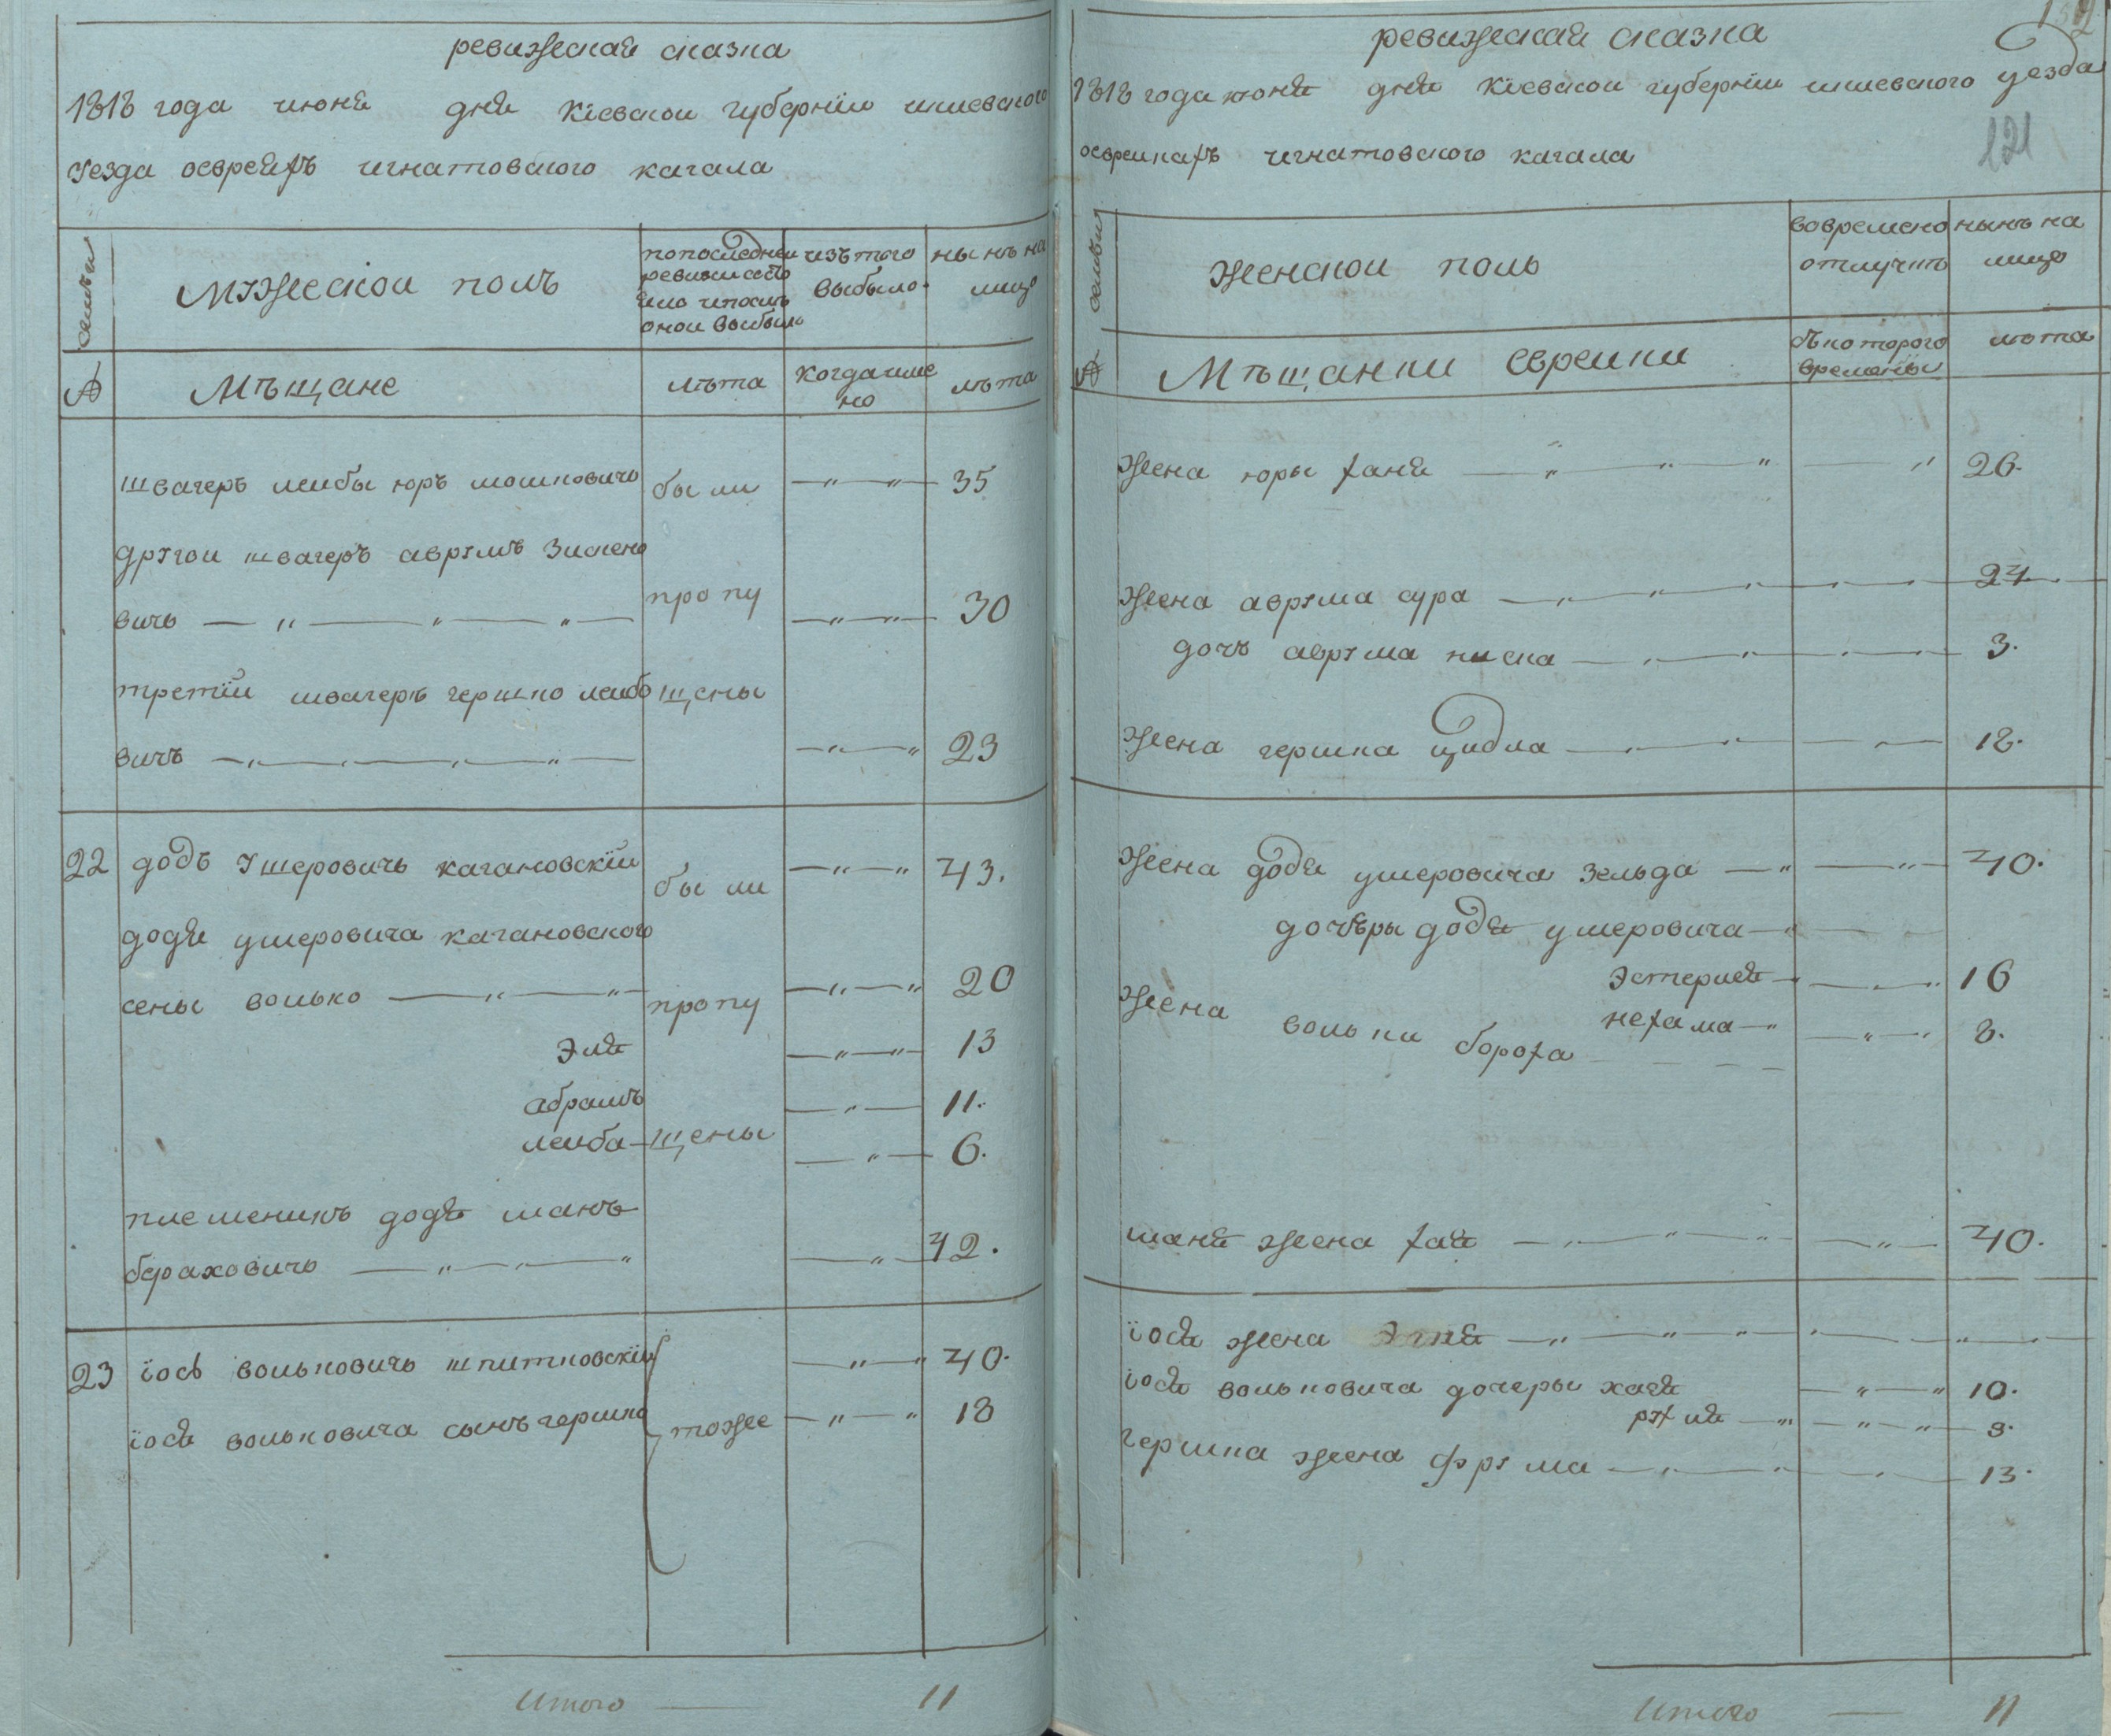 ревижская сказка
1818 года июня дня Кіевскои губерніи
уезда оевреяхъ игнатовского кагала
семьи
мужескои полъ
попоследнеи
ревизии состо
яло ипосль
онои выбыло
изъ того
выбыло
нынъ на
лицо
№
Мъщане
лъта
когда име
но
лъта
швагеръ леибы юръ мошковичь
были
— " — " —
35
другои швагеръ аврумъ Зисл*ено*
вичь — " — " — " —
пропу
— " — " —
30
третіи швагеръ гершко леибо
щены
вичъ — " — " — " — " —
— " — "
23
22
додъ ушеровичь кагановскіи
были
— " — "
43.
додя ушеровича кагановского
сены волько — " — "
пропу
— " — "
20
Эля
— " — " —
13
абрамъ
— " —
11.
леиба
щены
— " —
6.
племеникъ додя манъ
бераховичь — " — " — "
— " —
42.
23
іось вольковичь шпитковскіи
— " — "
40.
іося вольковича сынъ гершко
тоже
— " — "
18
Итого —
11
132
ревижская сказка
1818 года юня дня Кіевскои губерніи уезда
оевреикахъ игнатовского кагала
121
семьи
женскои полъ
вовремено
отлучить
нынъ на
лицо
№
Мъщанки евреики
съкоторого
времены
лъта
жена юры ханя — " — " — "
— "
26.
жена аврума сура — " — " — "
24.
дочъ аврума — " — "
3.
жена гершка цидла — " — "
— " —
18.
жена додя ушеровича Зельда — "
— " —
40.
дочъры додя ушеровича — "
эстерлея
16
нехама — "
8.
жена вольки бороха
маня жена хая — " — " — "
— " —
40.
іося жена — " — " — "
іося вольковича дочеры хася
— " — "
10.
рухля — "
— " — " —
8.
гершка жена фрума — " — "
— " —
13.
Итого —
11